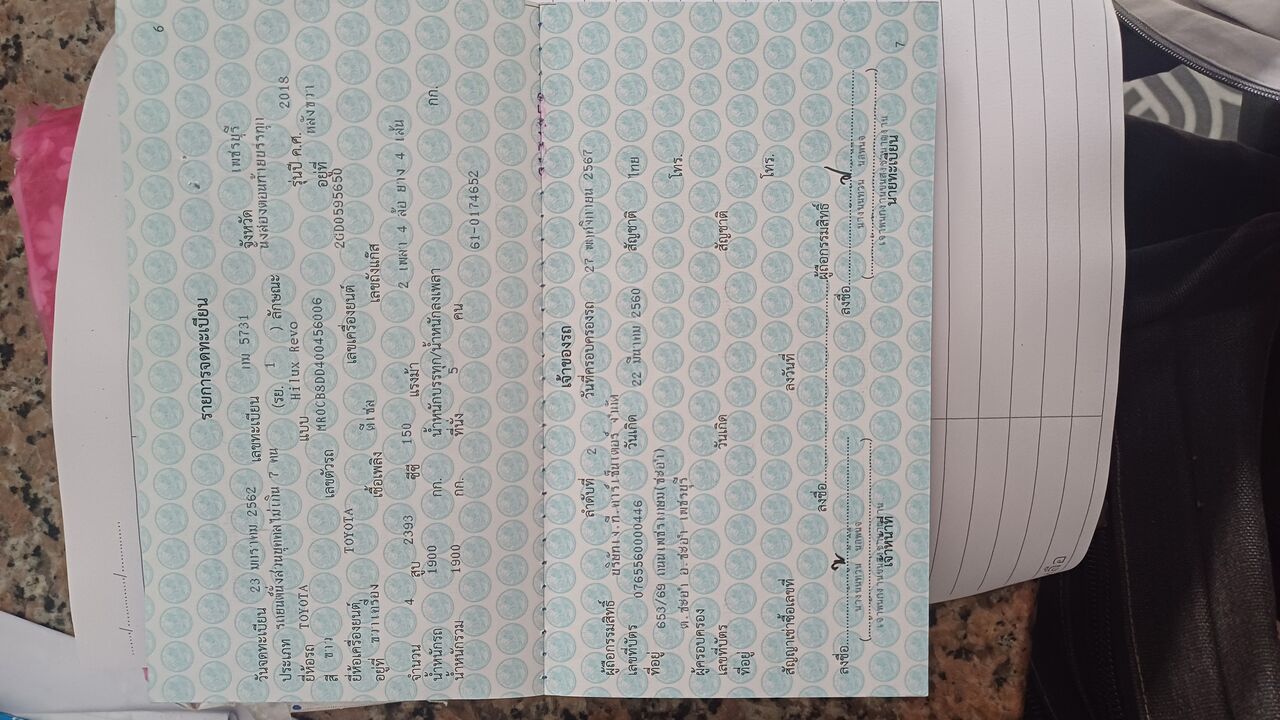 6
รายการจดทะเบียน
วันจดทะเบียน 23 มกราคม 2562 เลขทะเบียน กม 5731 จังหวัด เพชรบุรี
ประเภท รถยนต์นั่งส่วนบุคคลไม่เกิน 7 คน (รย. 1 ) ลักษณะ นั่งสองตอนท้ายบรรทุก
ยี่ห้อรถ TOYOTA แบบ Hilux Revo รุ่นปี ค.ศ. 2018
สี ขาว เลขตัวรถ MR0CB8DD400456006 อยู่ที่ หลังขวา
ยี่ห้อเครื่องยนต์ TOYOTA เลขเครื่องยนต์ 2GD0595650
อยู่ที่ ขวาเครื่อง เชื้อเพลิง ดีเซล เลขถังแก๊ส
จำนวน 4 สูบ 2393 ซีซี 150 แรงม้า 2 เพลา 4 ล้อ ยาง 4 เส้น
น้ำหนักรถ 1900 กก. น้ำหนักบรรทุก/น้ำหนักลงเพลา กก.
น้ำหนักรวม 1900 กก. ที่นั่ง 5 คน 61-0174652
เจ้าของรถ
ลำดับที่ 2 วันที่ครอบครองรถ 27 พฤศจิกายน 2567
ผู้ถือกรรมสิทธิ์ บริษัท
เลขที่บัตร 0765560000446 วันเกิด 22 มีนาคม 2560 สัญชาติ ไทย
ที่อยู่ 653/69 ถนนเพชรเกษม(ชะอำ) โทร.
ต.ชะอำ อ.ชะอำ เพชรบุรี
ผู้ครอบครอง
เลขที่บัตร วันเกิด สัญชาติ
ที่อยู่ โทร.
สัญญาเช่าซื้อเลขที่ ลงวันที่
ลงชื่อ ผู้ถือกรรมสิทธิ์
ลงชื่อ ลงชื่อ
เจ้าหน้าที่ นายทะเบียน
7